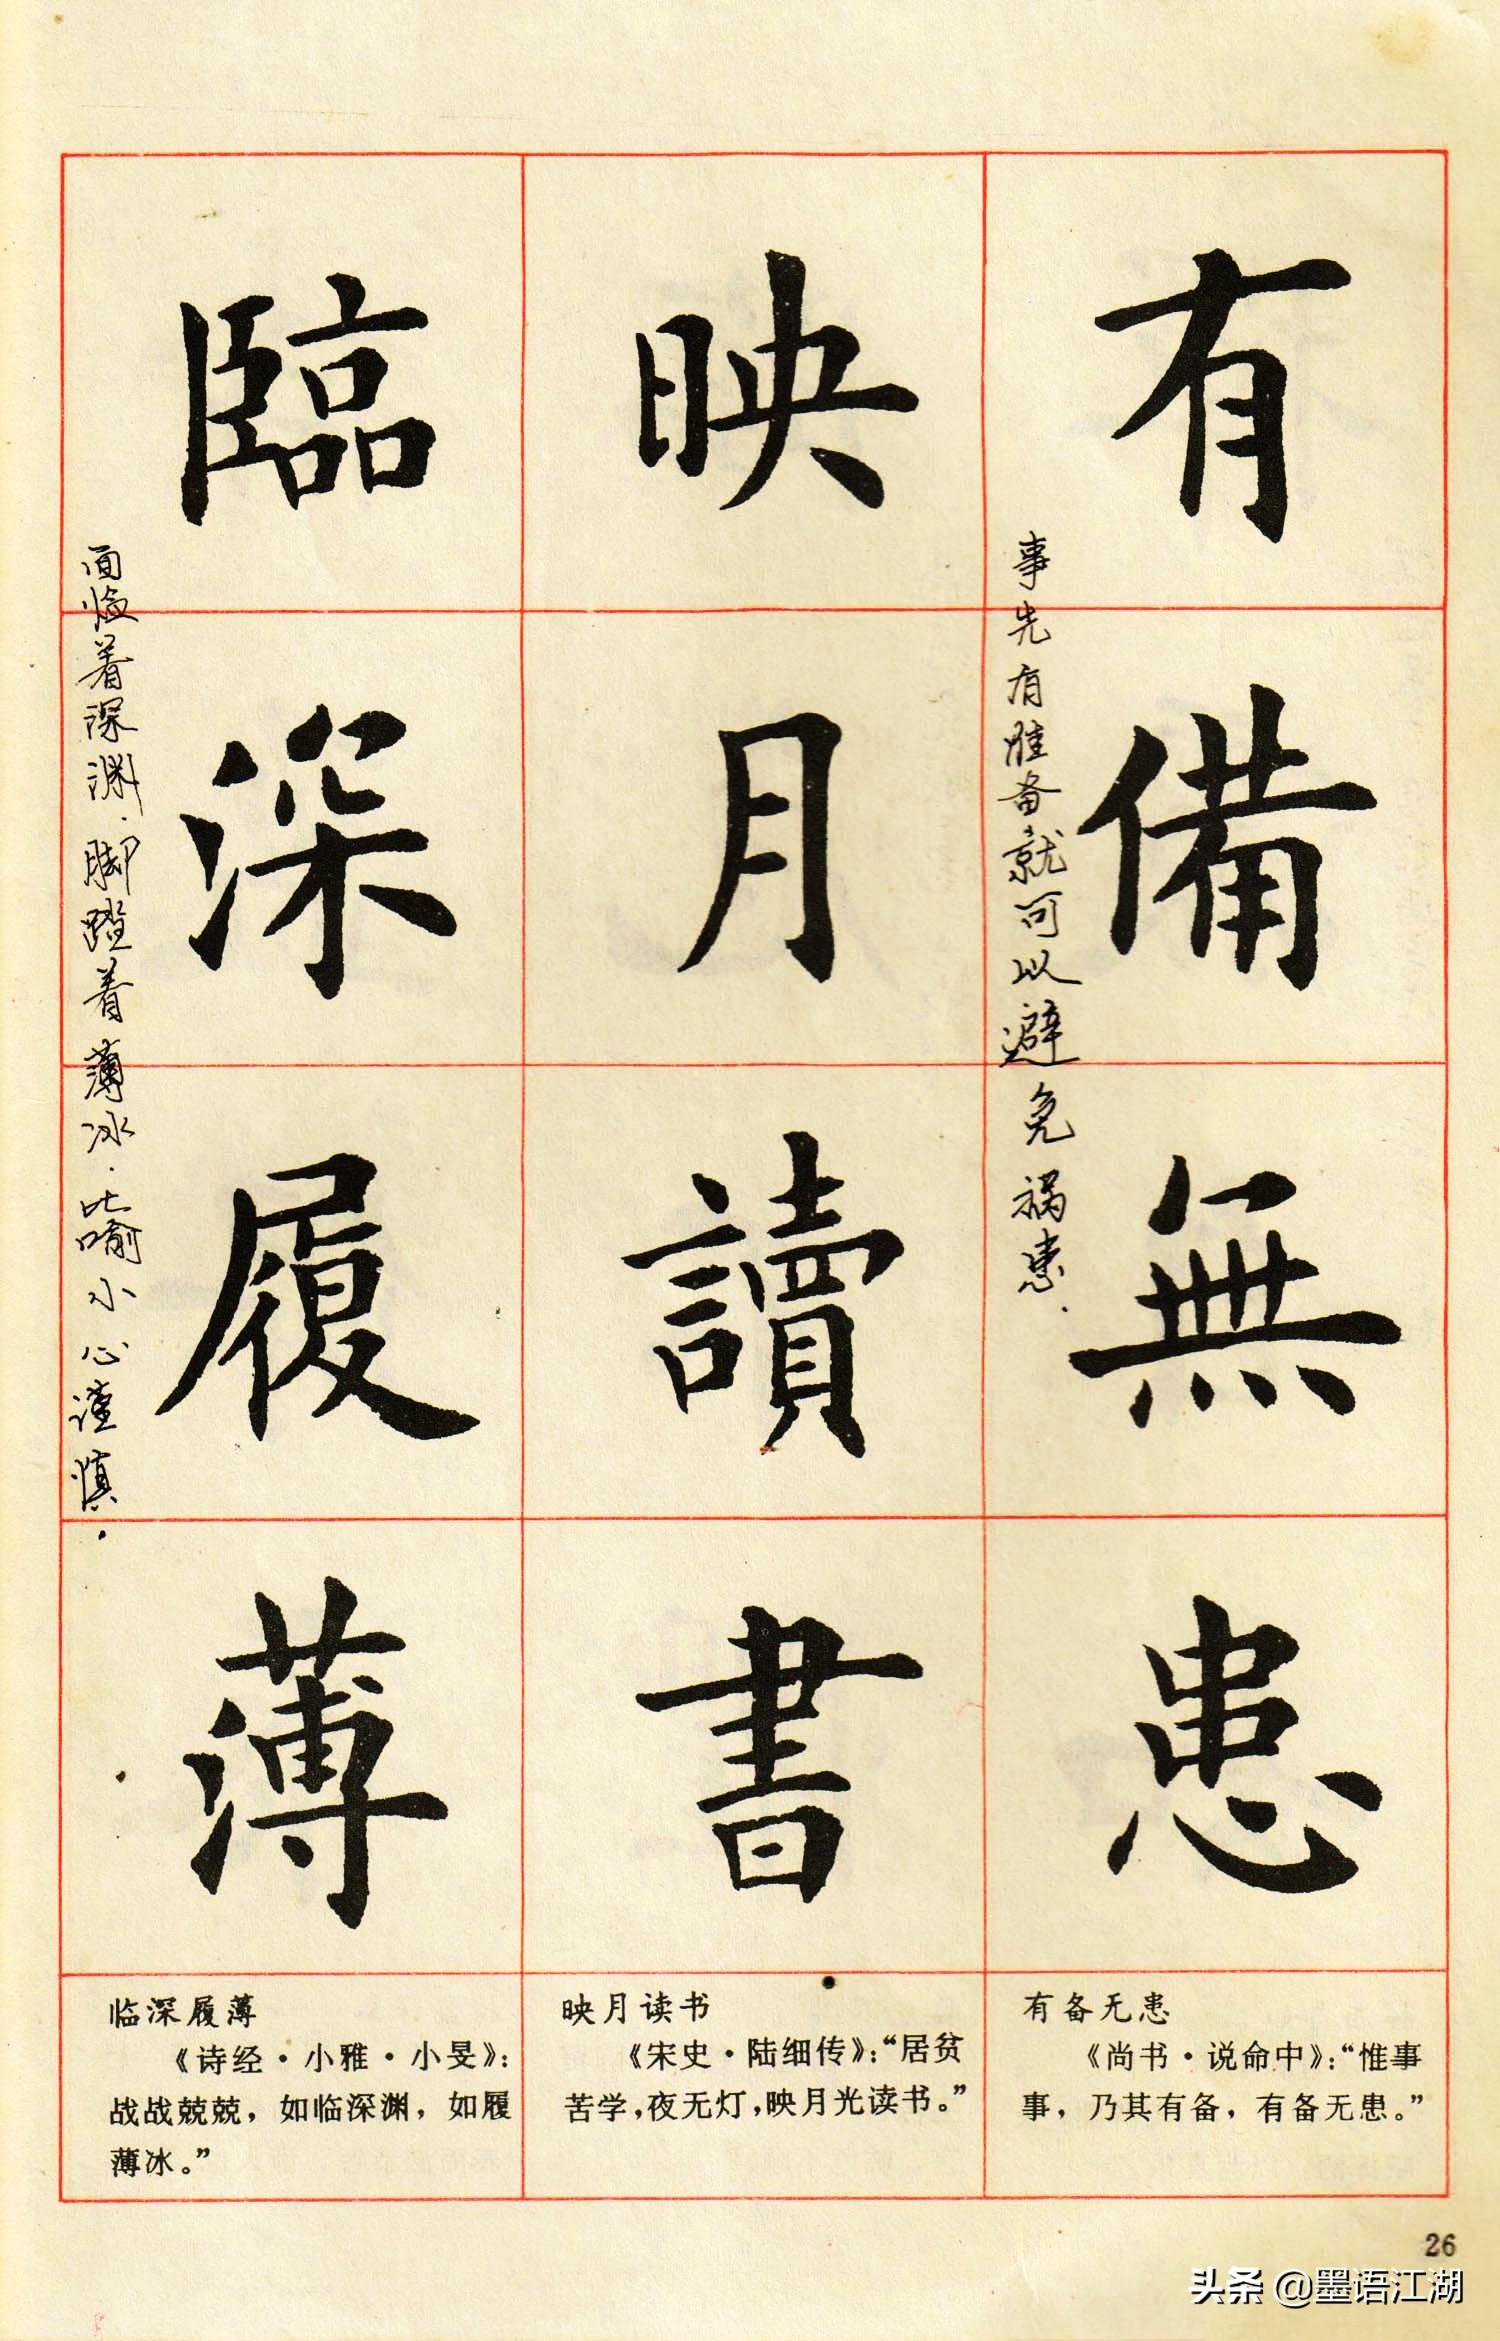 有備無患
事先有准备就可以避免祸患.
映月讀書
臨深履薄
面临着深渊.脚踏着薄冰.比喻小心谨慎.
有备无患
《尚书·说命中》：“惟事
事，乃其有备，有备无患。”
映月读书
《宋史·陆细传》：“居贫
苦学，夜无灯，映月光读书。”
临深履薄
《诗经·小雅·小旻》：
战战兢兢，如临深渊，如履
薄冰。”
26
头条 @墨语江湖